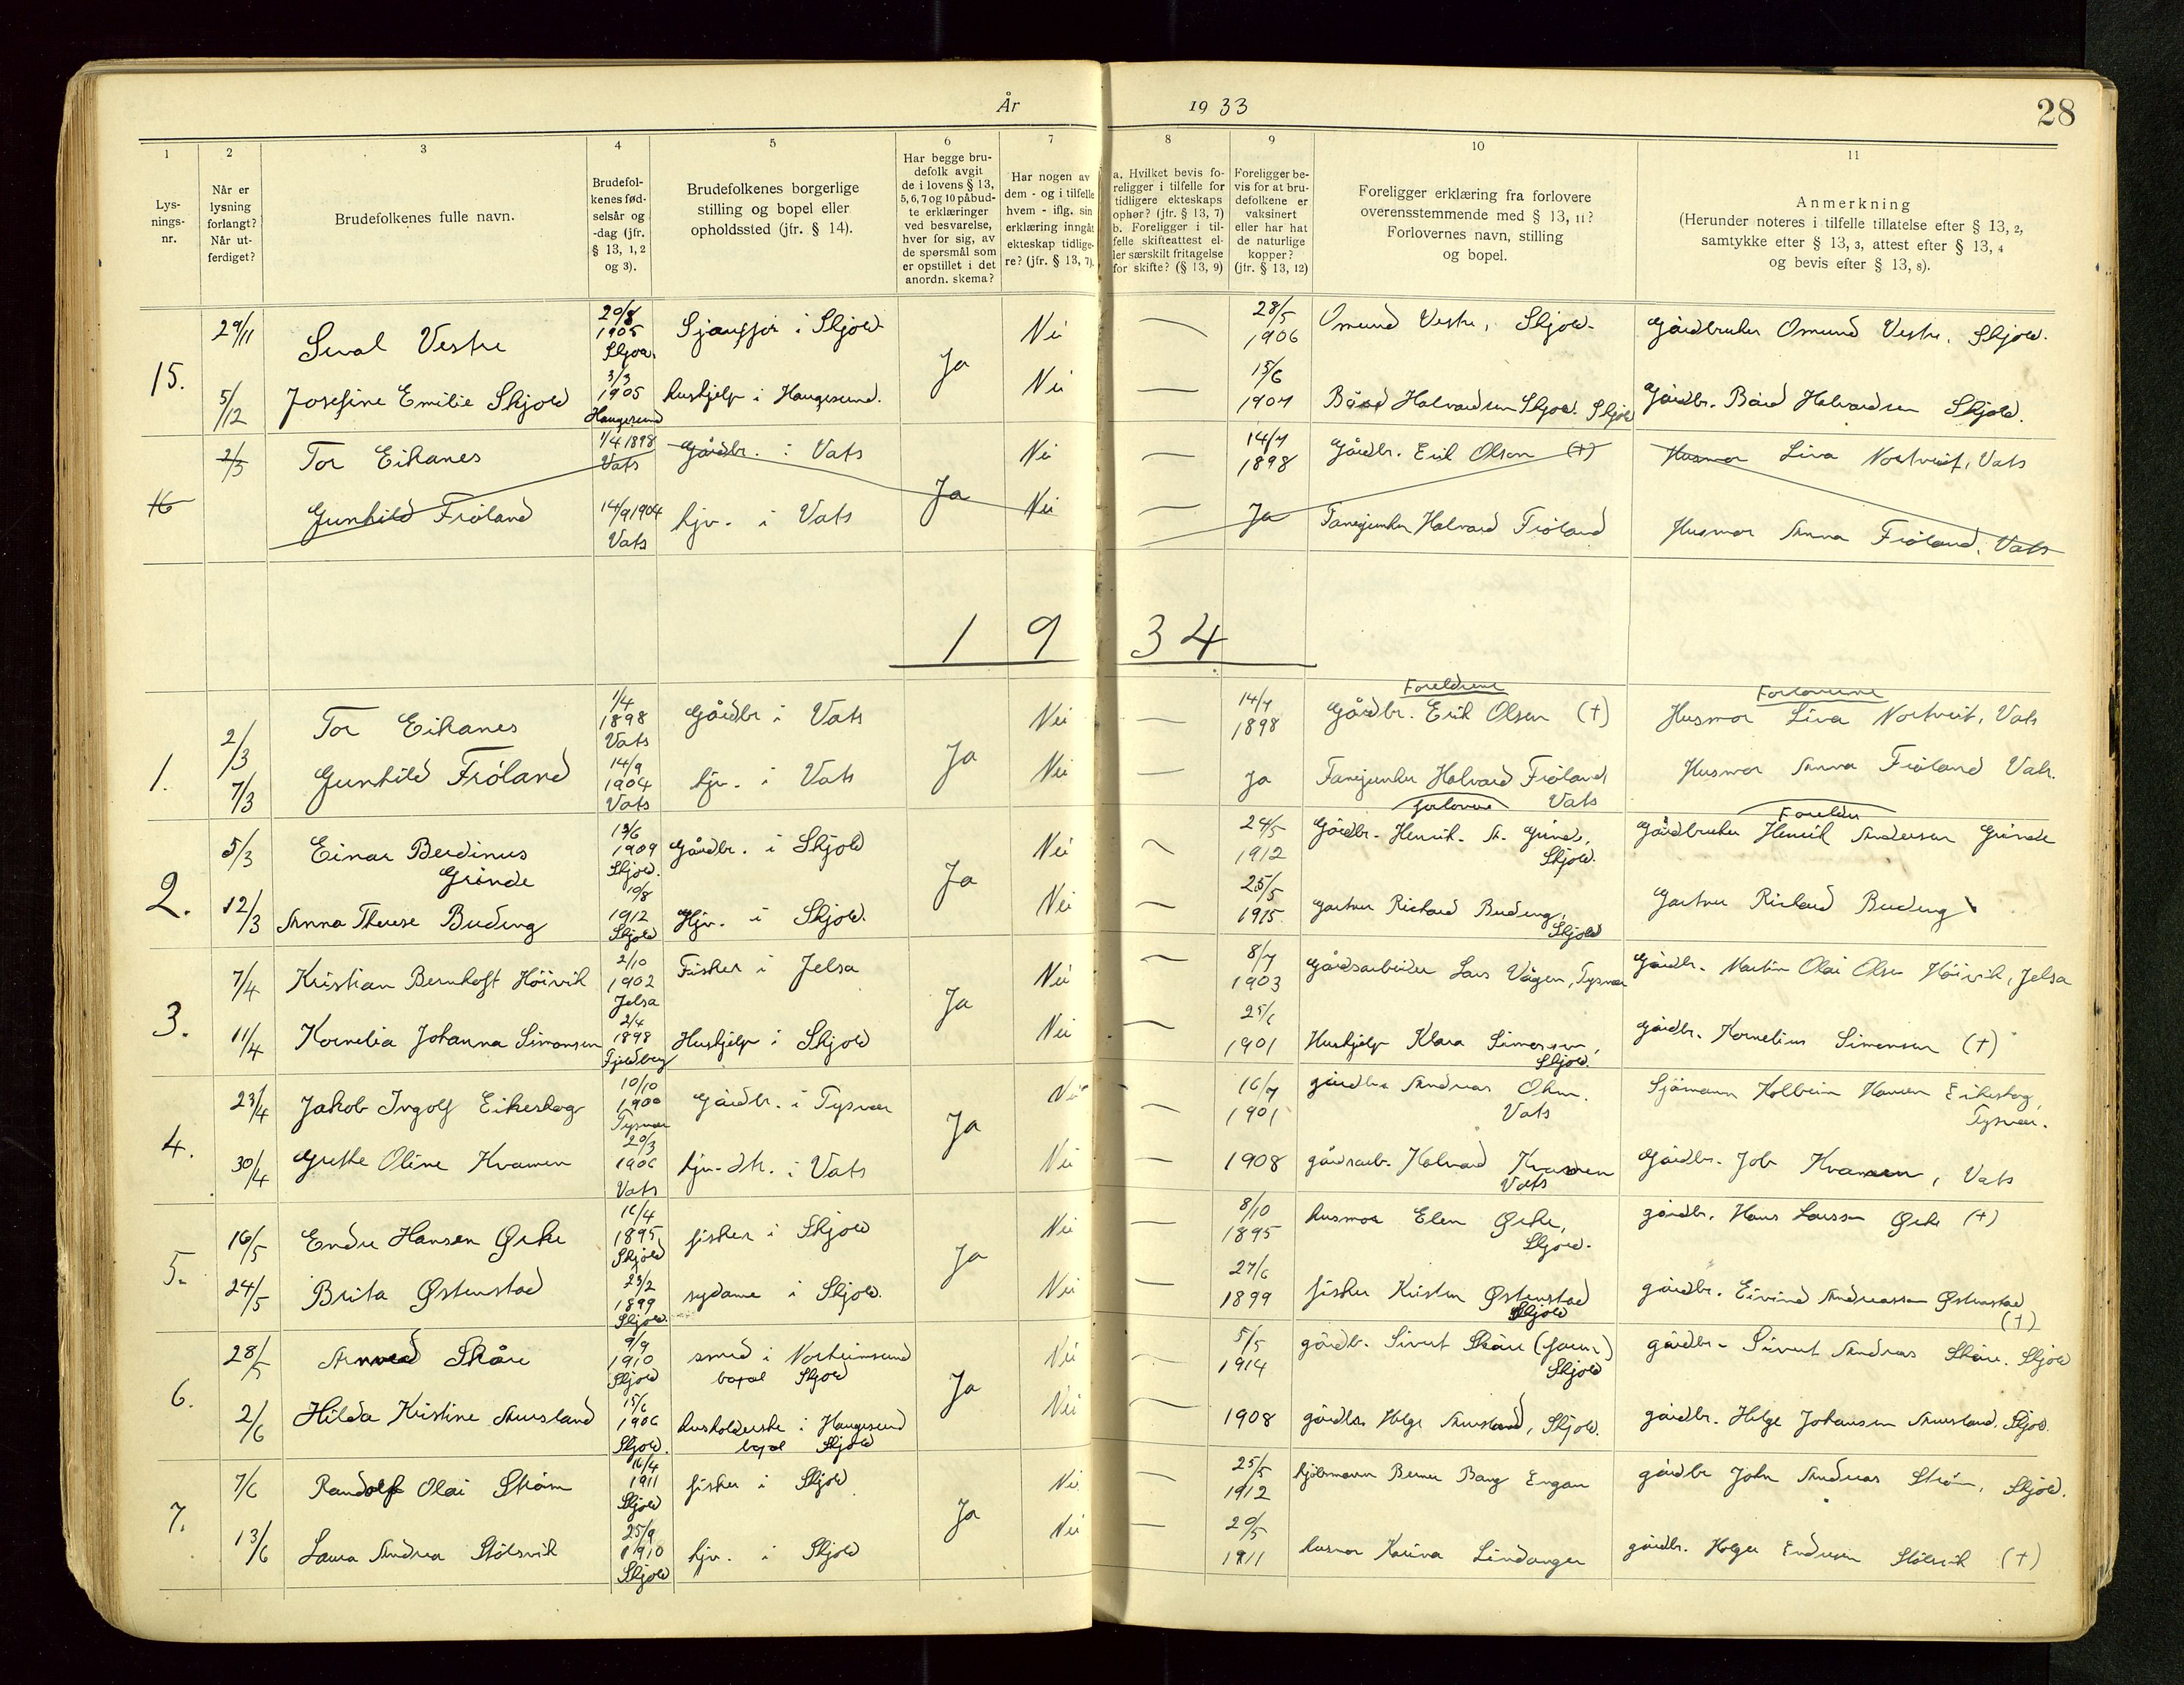 År 1933
28
1 2 3 4 5 6 7 8 9 10 11
Lys-
nings-
nr.
Når er
lysning
forlangt?
Når ut-
ferdiget?
Brudefolkenes fulle navn.
Brudefol-
kenes fød-
selsår og
-dag (jfr.
§ 13, 1, 2
og 3).
Brudefolkenes borgerlige
stilling og bopel eller
opholdssted (jfr. § 14).
Har begge bru-
defolk avgit
de i lovens § 13,
5, 6, 7 og 10 påbud-
te erklæringer
ved besvarelse,
hver for sig, av
de spørsmål som
er opstillet i det
anordn. skema?
Har nogen av
dem - og i tilfelle
hvem - iflg. sin
erklæring inngåt
ekteskap tidlige-
re? (jfr. § 13, 7).
a. Hvilket bevis fo-
religger i tilfelle for
tidligere ekteskaps
ophør? (jfr. § 13, 7)
b. Foreligger i til-
felle skifteattest el-
ler særskilt fritagelse
for skifte? (§ 13, 9)
Foreligger be-
vis for at bru-
defolkene er
vaksinert
eller har hat
de naturlige
kopper?
(jfr. § 13, 12)
Foreligger erklæring fra forlovere
overensstemmende med § 13, 11?
Forlovernes navn, stilling
og bopel.
Anmerkning
(Herunder noteres i tilfelle tillatelse efter § 13, 2,
samtykke efter § 13, 3, attest efter § 13, 4
og bevis efter § 13, 8).
15.
29/11 Sival Vestre 20/8 1905 Skjold i Skjold Ja Nei — 28/5 1906 Omund Vestre, Skjold. Gårdbruker Omund Vestre, Skjold.
5/12 Josefine Emilie Skjold 3/3 1905 Haugesund hushjelp i Haugesund. Nei — 15/6 1907 Bård Halvardsen Skjold. Skjold Gårdbr. Bård Halvardsen Skjold.
16
2/3 Tor Eikanes 1/4 1898 Vats Gårdbr. i Vats Ja Nei — 14/7 1898 Gårdbr. Erik Olsen (+) Husmor Liva Nortveit, Vats
Gunhild Frøland 14/9 1904 Vats hjv. i Vats Nei — Ja Halvard Frøland Husmor Anna Frøland, Vats
1934
Foreldrene Forloverne
1.
2/3 Tor Eikanes 1/4 1898 Vats Gårdbr i Vats Ja Nei — 14/7 1898 Gårdbr. Erik Olsen (+) Husmor Liva Nortveit, Vats
7/3 Gunhild Frøland 14/9 1904 Vats hjv. i Vats Nei — Ja Halvard Frøland Vats Husmor Anna Frøland Vats.
forlovere Foreldre
2.
5/3 Einar Berdinus Grinde 13/6 1909 Skjold. Gårdbr. i Skjold Ja Nei — 24/5 1912 Gårdbr. Henrik A. Grinde, Skjold. Gårdbruker Henrik Andersen Grinde
12/3 Anna Therese Buderg 10/8 1912 Skjold Hjv. i Skjold. Nei — 25/5 1915 Gartner Richard Buderg, Skjold Gartner Richard Buderg
3.
7/4 Kristian Bernhoft Høivik 2/10 1902 Jelsa Fisker i Jelsa Ja Nei — 8/7 1903 Gårdsarbeider Lars Vågen, Tysvær Gårdbr. Martin Olai Olsen Høivik, Jelsa
11/4 Kornelia Johanna Simonsen 2/4 1898 Fjeldberg Hushjelp i Skjold Nei — 25/6 1901 Hushjelp Klara Simonsen, Skjold. Gårdbr. Kornelius Simonsen (+)
4.
23/4 Jakob Ingolf Eikeskog 10/10 1900 Tysvær Gårdbr. i Tysvær Ja Nei — 16/7 1901 gårdbr Andreas Vats Sjømann Kolbein Hansen Eikeskog, Tysvær.
30/4 Grethe Oline Kvamen 20/3 1906 Vats hjv. dtr. i Vats Nei — 1908 gårdsarb. Halvard Kvamen Vats Gårdbr. Job Kvamen, Vats
5.
16/5 Endre Hansen Ørke 16/4 1895 Skjold fisker i Skjold Ja Nei — 8/10 1895 husmor Elen Ørke, Skjold. gårdbr. Hans Larsen Ørke (+)
24/5 Brita Østenstad 23/2 1899 Skjold. sydame i Skjold. Nei — 27/6 1899 fisker Kristen Østenstad Skjold gårdbr. Eivind Andreassen Østenstad (+)
6.
28/5 Arnved Skåre 9/9 1910 Skjold smed i Norheimsund bopæl Skjold Ja Nei — 5/5 1914 gårdbr. Sivert Skåre (faren) Skjold gårdbr. Sivert Andreas Skåre. Skjold
2/6 Hilda Kristine Aursland 15/6 1906 Skjold. husholderske i Haugesund bopel Skjold Nei — 1908 gårdbr. Helge Aursland, Skjold. gårdbr. Helge Johansen Aursland. Skjold.
7.
7/6 Randolf Olai Strøm 16/4 1911 Skjold fisker i Skjold Ja Nei — 25/5 1912 Berner Bang Engan gårdbr John Andreas Strøm, Skjold.
13/6 Laura Andrea Stølsvik 25/9 1910 Skjold hjv. i Skjold Nei — 20/5 1911 husmor Karina Lindanger gårdbr. Holger Endresen Stølsvik (+)